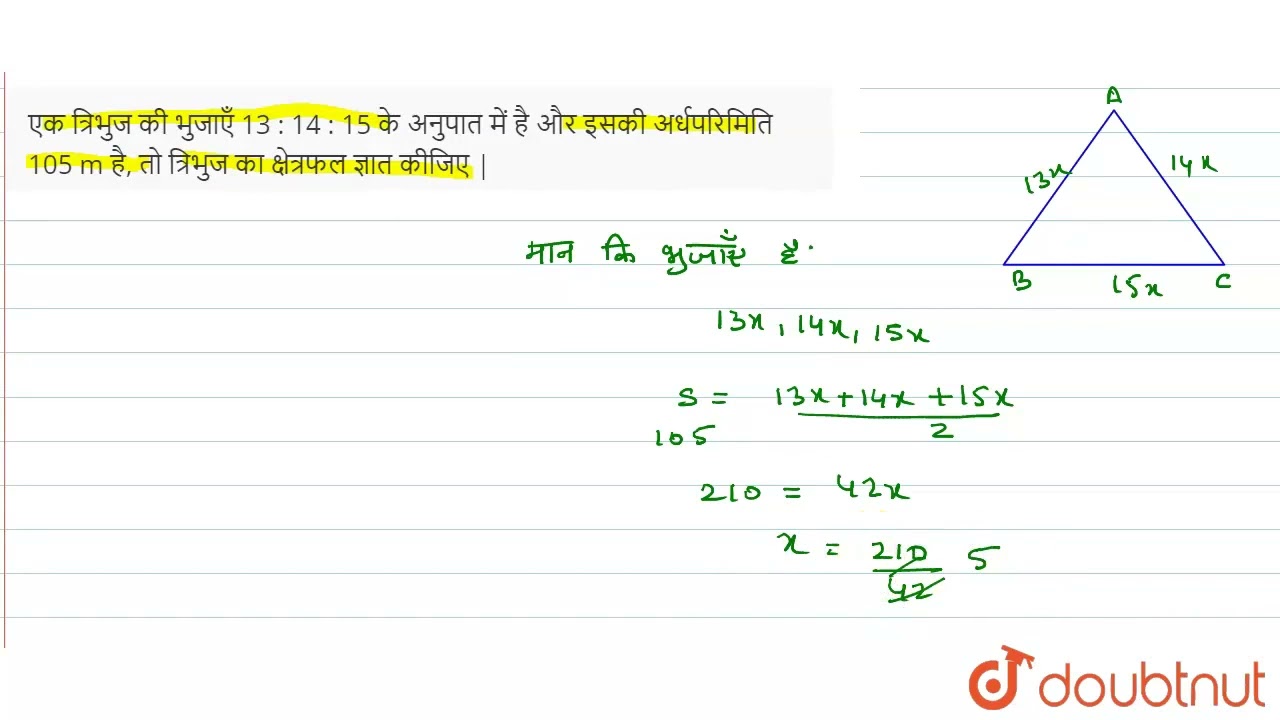 एक त्रिभुज की भुजाएँ 13 : 14 : 15 के अनुपात में है और इसकी अर्धपरिमिति
105 m है, तो त्रिभुज का क्षेत्रफल ज्ञात कीजिए |
A
13x
14x
B
15x
C
मान कि भुजाएँ है
13x, 14x, 15x
S = 13x + 14x + 15x
2
105
210 = 42x
x = 210
42
5
doubtnut